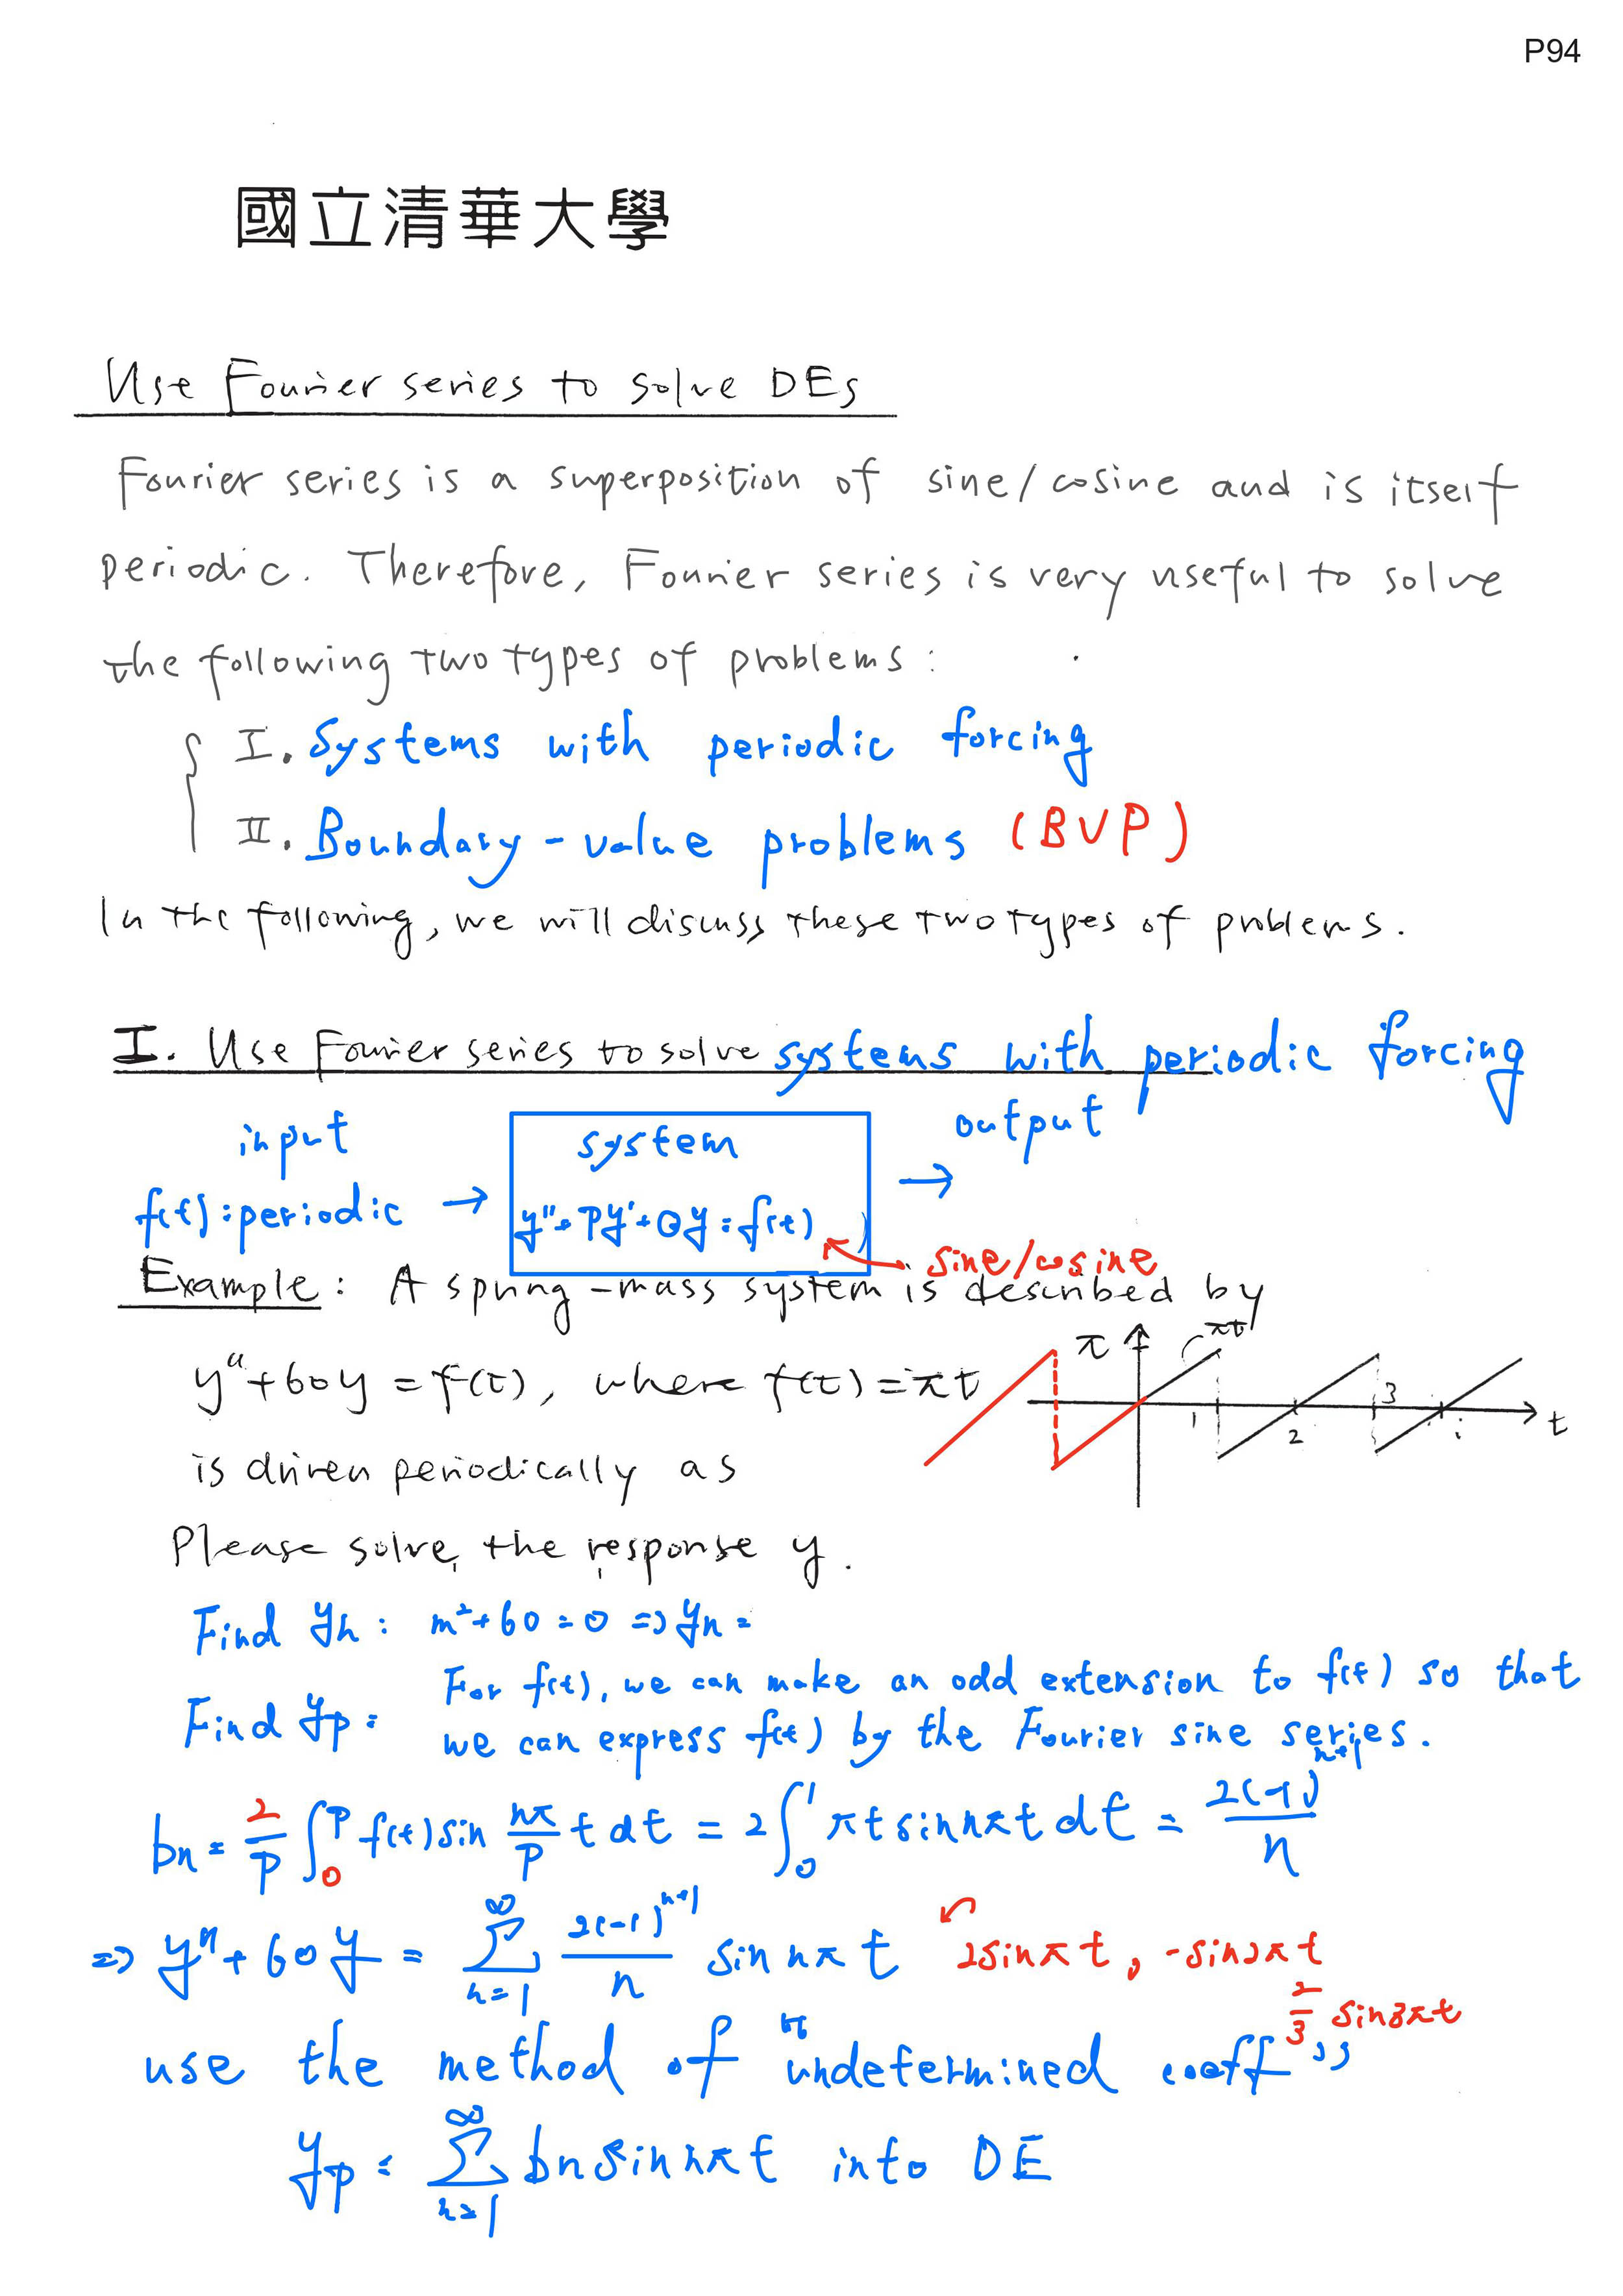 P94
國立清華大學
Use Fourier series to solve DEs
Fourier series is a superposition of sine/cosine and is itself
periodic. Therefore, Fourier series is very useful to solve
the following two types of problems:
I. Systems with periodic forcing
II. Boundary-value problems (BVP)
In the following, we will discuss these two types of problems.
I. Use Fourier series to solve systems with periodic forcing
input system output
f(t): periodic → y''+Py'+Qy=f(t) →
sine/cosine
Example: A spring-mass system is described by
y''+60y = f(t), where f(t)=πt
π πt
1 2 3 t
is driven periodically as
Please solve the response y.
Find yh: m²+60=0 => yh=
For f(t), we can make an odd extension to f(t) so that
Find yp: we can express f(t) by the Fourier sine series.
bn = 2/P ∫₀^P f(t) sin nπ/P t dt = 2∫₀^1 πt sin nπt dt = 2(-1)^(n+1)/n
=> y''+60y = ∑_(n=1)^∞ 2(-1)^(n+1)/n sin nπt 2sinπt, -sin2πt
2/3 sin3πt
use the method of undetermined coeff
yp = ∑_(n=1)^∞ bn sin nπt into DE